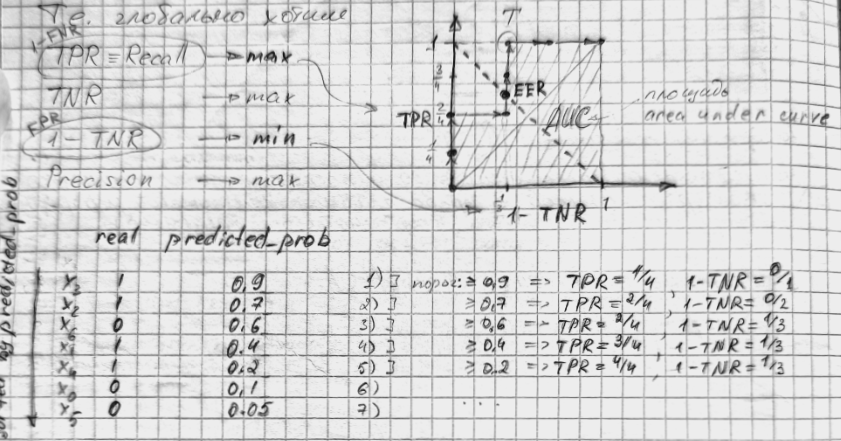 Т.е. глобально хотим
1-FNR
TPR = Recall → max
TNR → max
FPR
1 - TNR → min
Precision → max
T
1
3/4
TPR 2/4
1/4
EER
AUC
1/3
1 - TNR
1
площадь
area under curve
sorted by predicted_prob
real predicted_prob
X₃ 1 0,9 1) ] порог: ≥ 0,9 => TPR = 1/4, 1-TNR = 0/1
X₂ 1 0,7 2) ] ≥ 0,7 => TPR = 2/4, 1-TNR = 0/2
X₆ 0 0,6 3) ] ≥ 0,6 => TPR = 2/4, 1-TNR = 1/3
X₁ 1 0.4 4) ] ≥ 0,4 => TPR = 3/4, 1-TNR = 1/3
X₄ 1 0,2 5) ] ≥ 0.2 => TPR = 4/4, 1-TNR = 1/3
X₀ 0 0,1 6)
X₅ 0 0.05 7) ....